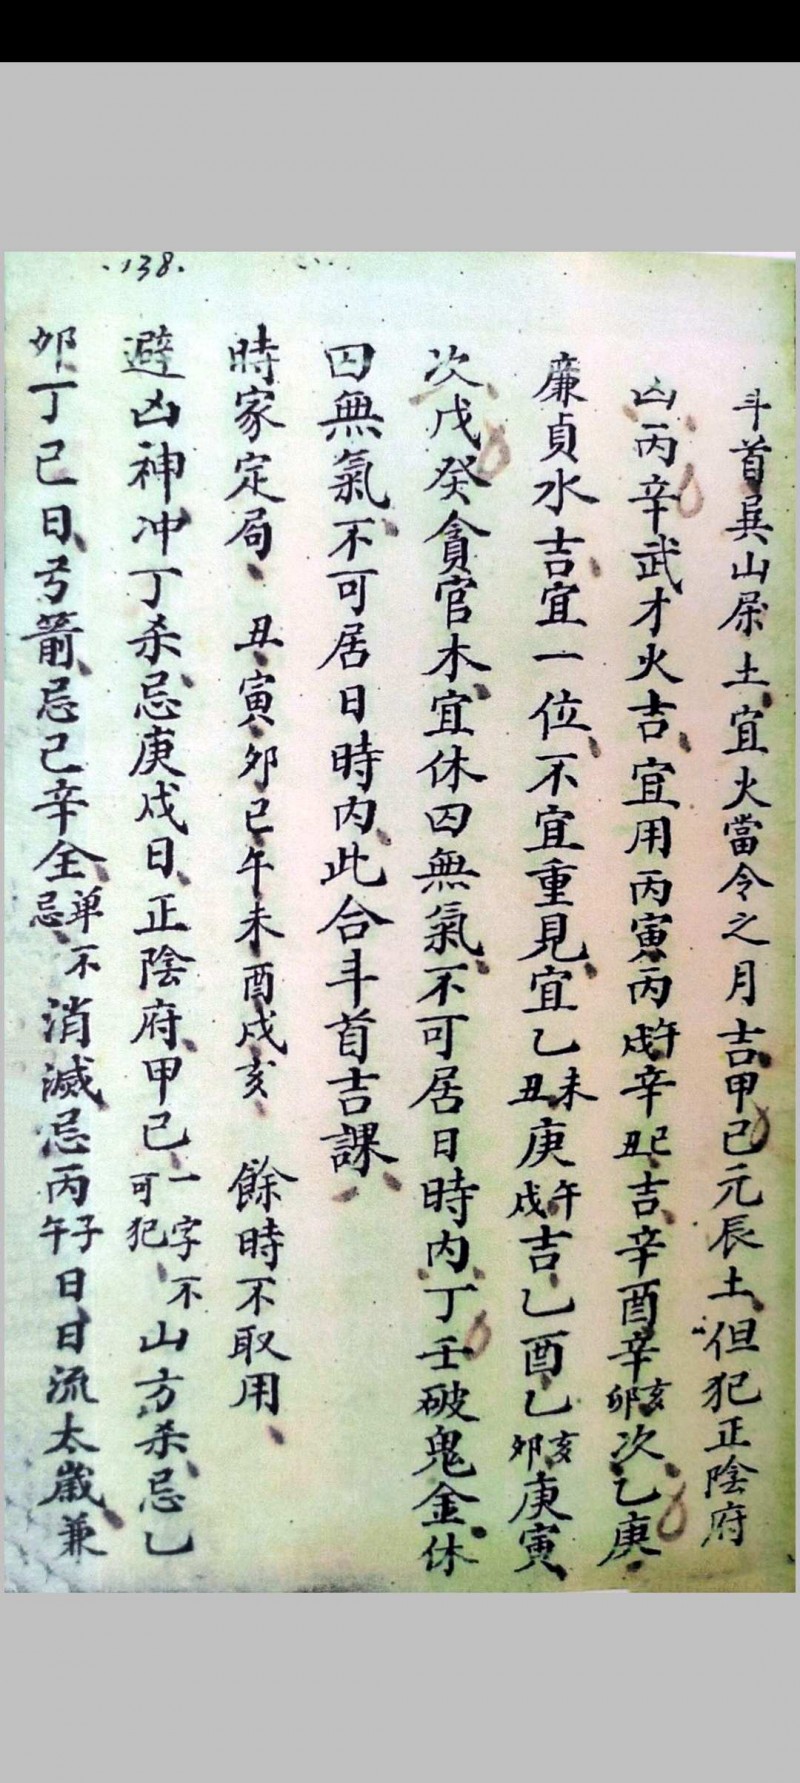 ·138·
斗首巽山屬土宜火當令之月吉甲己元辰土但犯正陰府
凶丙辛武才火吉宜用丙寅丙午戌辛巳丑吉辛酉辛亥卯次乙庚
廉貞水吉宜一位不宜重見宜乙未丑庚午戌吉乙酉乙亥卯庚寅
次戊癸貪官木宜休囚無氣不可居日時內丁壬破鬼金休
囚無氣不可居日時內此合斗首吉課
時家定局 丑寅卯巳午未酉戌亥 餘時不取用
避凶神冲丁杀忌庚戌日正陰府甲己一字不可犯山方杀忌乙
卯丁巳日弓箭忌己辛全单不忌消滅忌丙子午日日流太歲兼